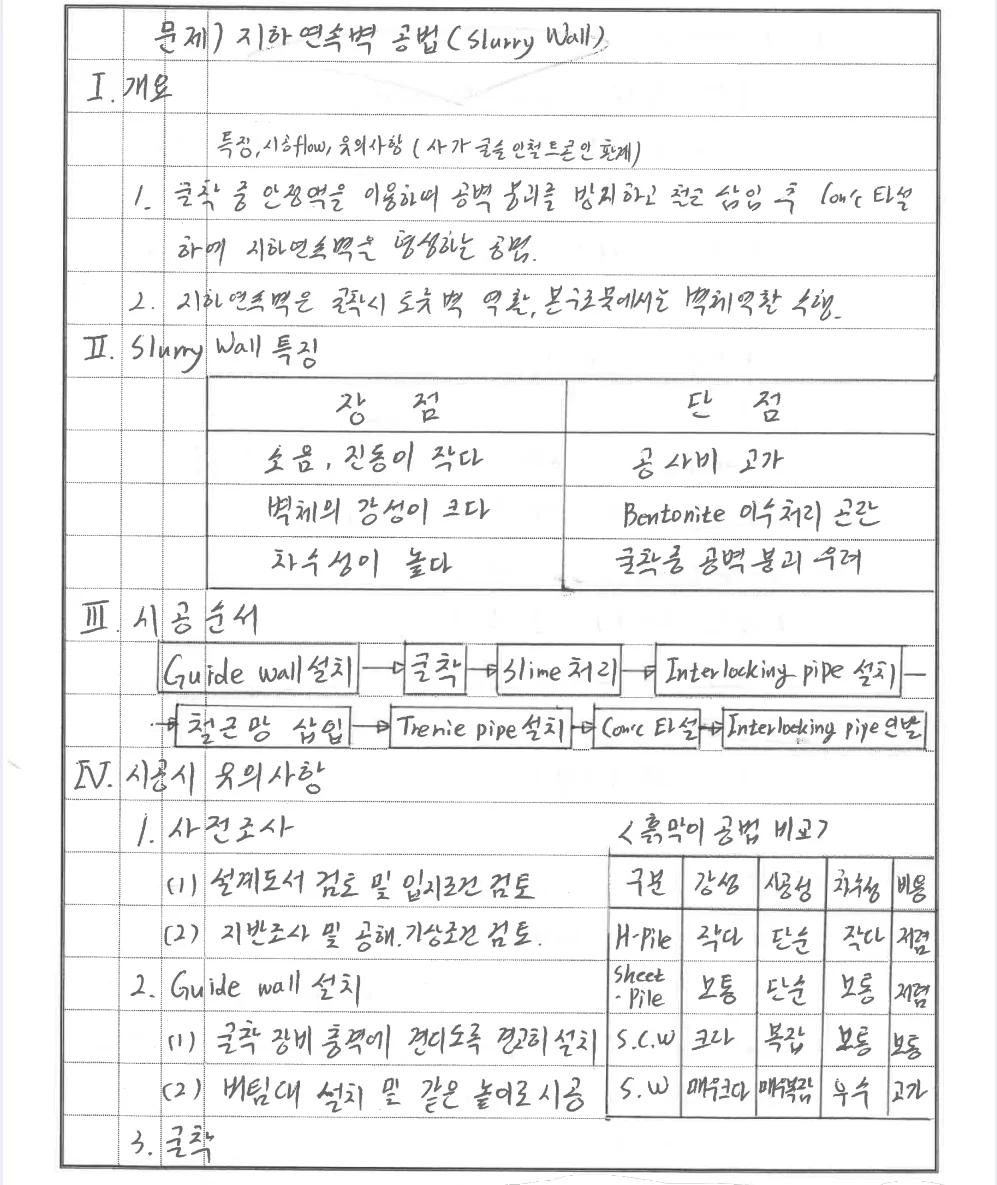 문제) 지하연속벽 공법(Slurry Wall)
I. 개요
특징, 시공flow, 유의사항 (사가굴슬인철트콘인 환계)
1. 굴착 중 안정액을 이용하여 공벽 붕괴를 방지하고 철근 삽입 후 Con'c 타설
하여 지하연속벽을 형성하는 공법.
2. 지하연속벽은 굴착시 토류벽 역할, 본구조물에서는 벽체역할 수행.
II. Slurry Wall 특징
장 점 단 점
소음, 진동이 작다 공사비 고가
벽체의 강성이 크다 Bentonite 이수처리 곤란
차수성이 높다 굴착중 공벽붕괴 우려
III. 시공순서
Guide wall 설치 → 굴착 → Slime 처리 → Interlocking pipe 설치
→ 철근망 삽입 → Tremie pipe 설치 → Con'c 타설 → Interlocking pipe 인발
IV. 시공시 유의사항
1. 사전조사
(1) 설계도서 검토 및 입지조건 검토
(2) 지반조사 및 공해.기상조건 검토.
2. Guide wall 설치
(1) 굴착 장비 충격에 견디도록 견고히 설치
(2) 버팀대 설치 및 같은 높이로 시공
3. 굴착
<흙막이 공법 비교>
구분 강성 시공성 차수성 비용
H-Pile 작다 단순 작다 저렴
Sheet-Pile 보통 단순 보통 저렴
S.C.W 크다 복잡 보통 보통
S.W 매우크다 매우복잡 우수 고가